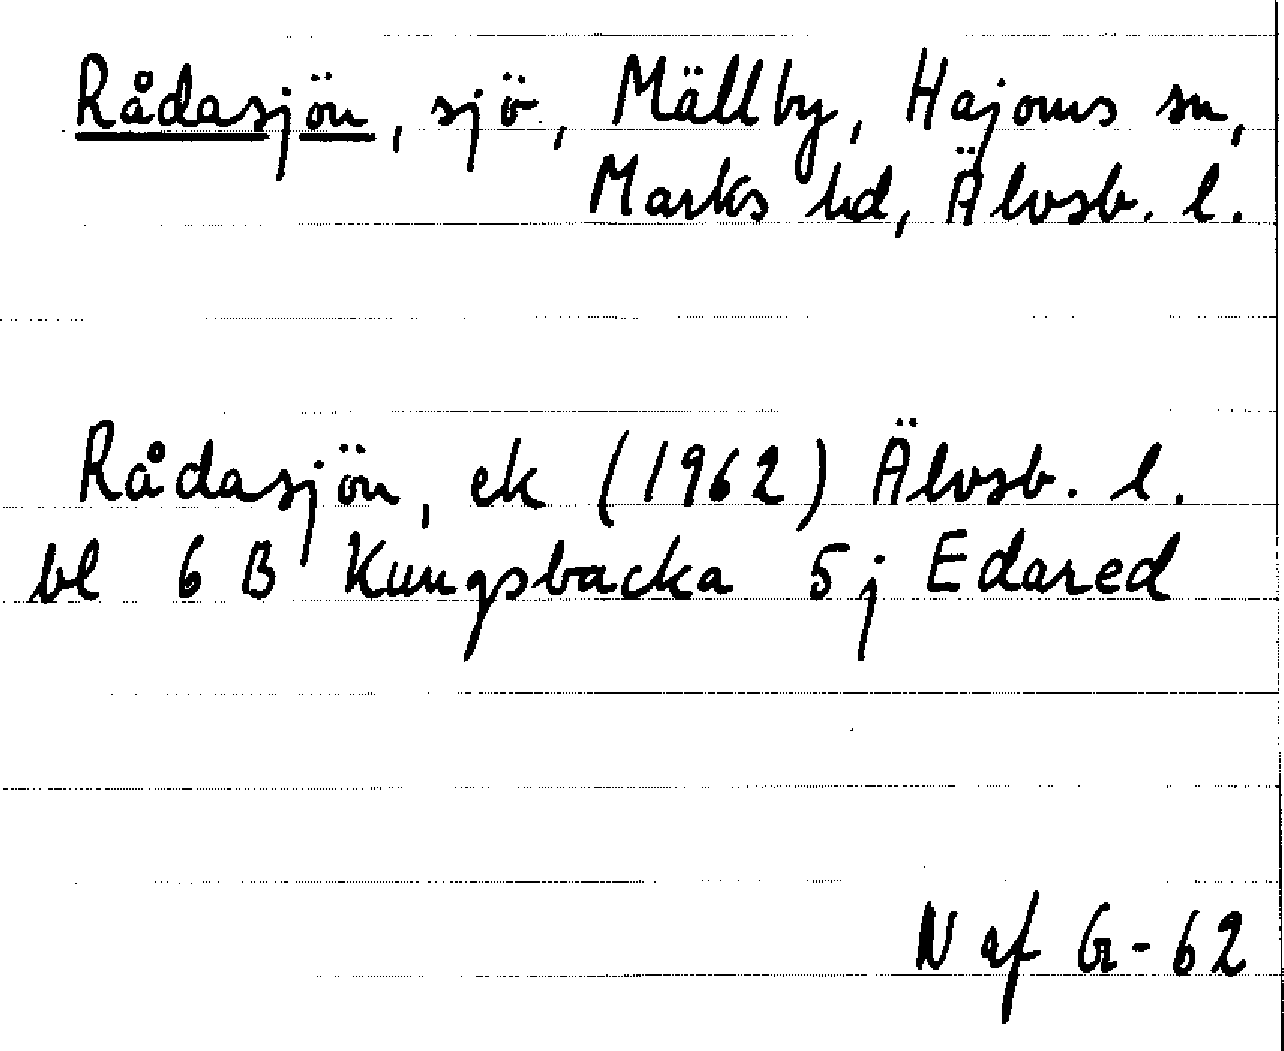 Rådasjön, sjö, Mällby, Hajoms sn,
Marks hd, Älvsb. l.
Rådasjön, ek (1962) Älvsb. l.
bl 6 B Kungsbacka 5 j Edared
N af G-62